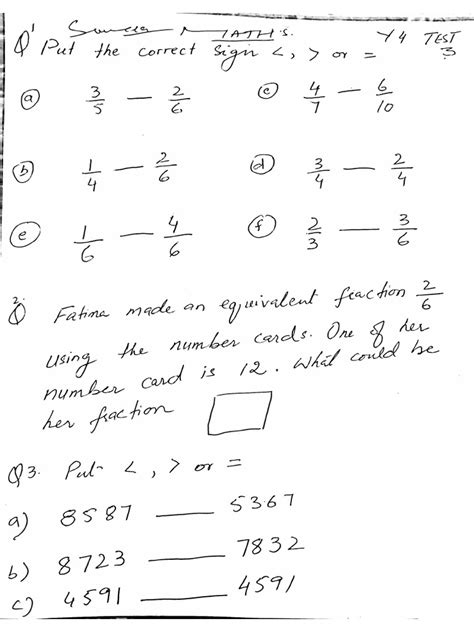 MATHS. Y4 TEST 3
Q1 Put the correct sign <, > or =
(a) 3/5 — 2/6 (c) 4/7 — 6/10
(b) 1/4 — 2/6 (d) 3/4 — 2/4
(e) 1/6 — 4/6 (f) 2/3 — 3/6
Q2. Fatima made an equivalent fraction 2/6
using the number cards. One of her
number card is 12. What could be
her fraction
Q3. Put <, > or =
a) 8587 ___ 5367
b) 8723 ___ 7832
c) 4591 ___ 4591